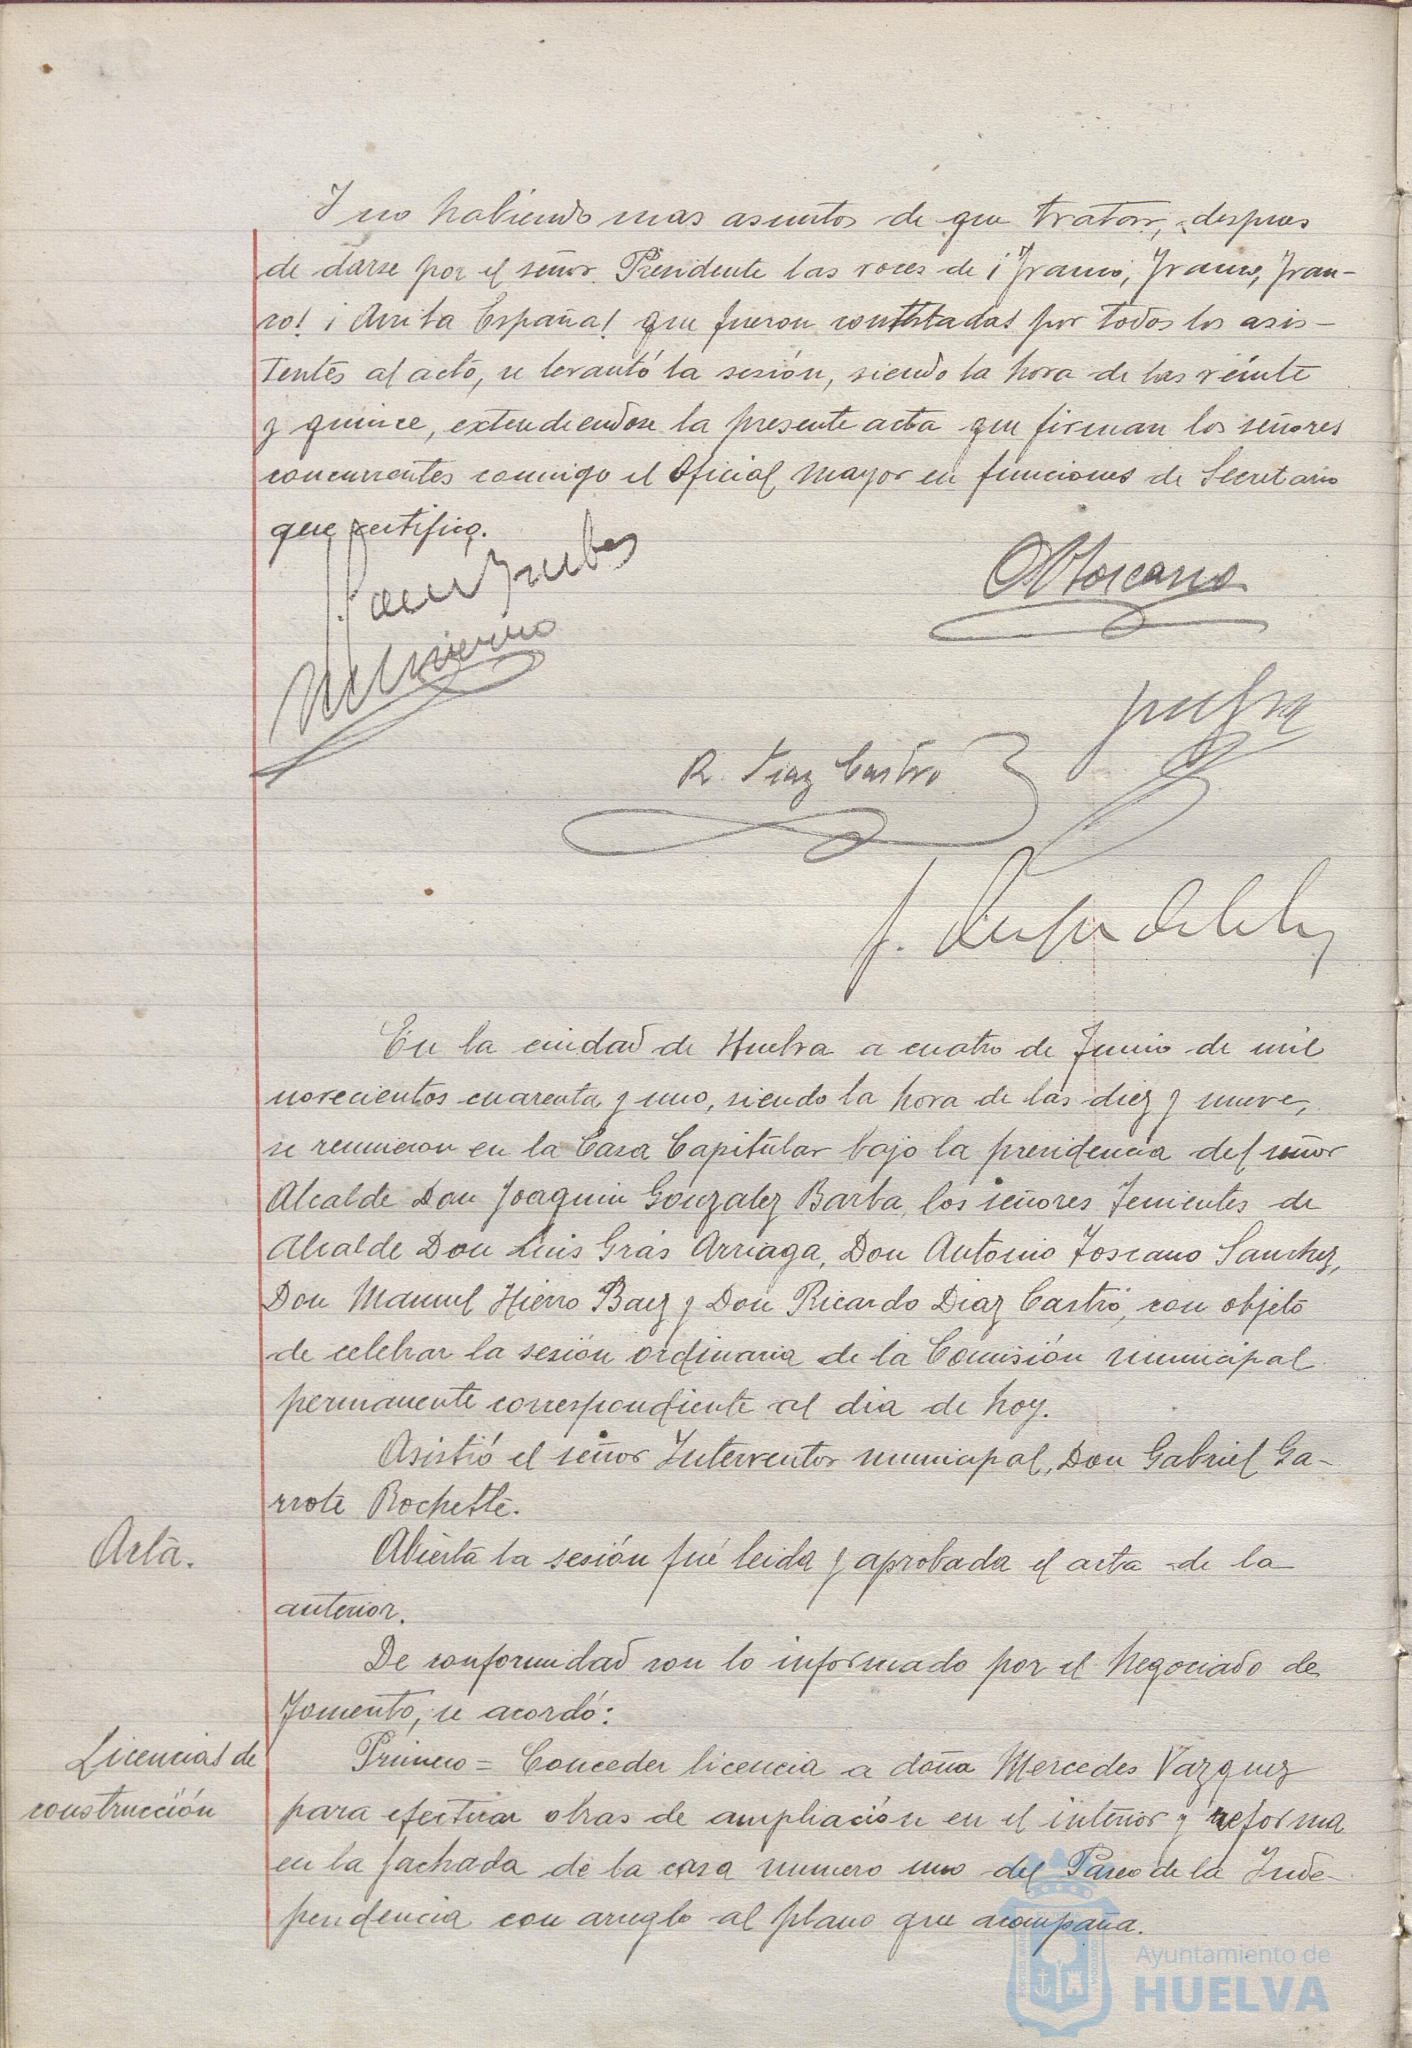 Y no habiendo mas asuntos de que tratar, despues
de darse por el señor Presidente las voces de ¡Franco, Franco, Fran-
co! ¡Arriba España! que fueron contestadas por todos los asis-
tentes al acto, se levantó la sesión, siendo la hora de las veinte
y quince, extendiendose la presente acta que firman los señores
concurrentes conmigo el Oficial Mayor en funciones de Secretario
que certifico.
A Toscano
R. Diaz Castro
En la ciudad de Huelva a cuatro de Junio de mil
novecientos cuarenta y uno, siendo la hora de las diez y nueve,
se reunieron en la Casa Capitular bajo la presidencia del señor
Alcalde Don Joaquin Gonzalez Barba, los señores Tenientes de
Alcalde Don Luis Gras Arriaga, Don Antonio Toscano Sanchez,
Don Manuel Hierro Baez y Don Ricardo Diaz Castro, con objeto
de celebrar la sesión ordinaria de la Comisión municipal
permanente correspondiente al dia de hoy.
Asistió el señor Interventor municipal, Don Gabriel Ga-
rrote Rochette.
Acta.
Abierta la sesión fué leida y aprobada el acta de la
anterior.
De conformidad con lo informado por el Negociado de
Fomento, se acordó:
Licencias de
construcción
Primero = Conceder licencia a doña Mercedes Vazquez
para efectuar obras de ampliación en el interior y reforma
en la fachada de la casa numero uno del Paseo de la Inde-
pendencia con arreglo al plano que acompaña.
Ayuntamiento de
HUELVA